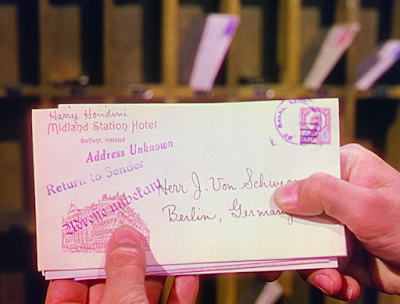 Harry Houdini
Midland Station Hotel
Belfast, Ireland
Address Unknown
Return to Sender
Adresse unbekannt
Herr J. Von
Berlin, Germany